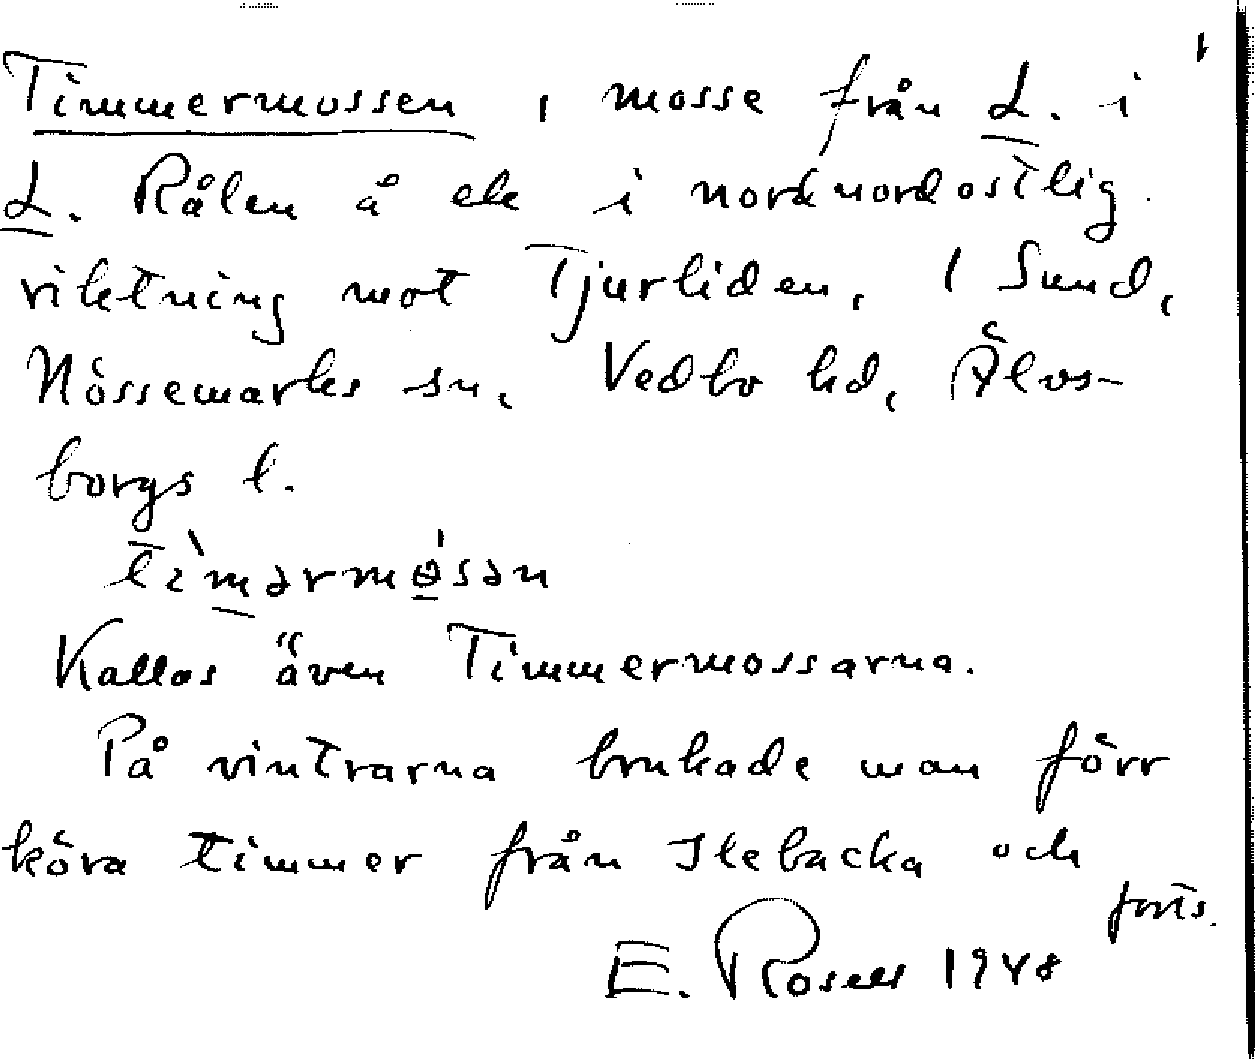 1
Timmermossen, mosse från L. i
L. Rålen å ek i nordnordostlig
riktning mot Tjurliden, i Sund,
Nössemarks sn, Vedbo hd, Älvs-
borgs l.
Kallas även Timmermossarna.
På vintrarna brukade man förr
köra timmer från Ilebacka och
forts.
E. Rosell 1948